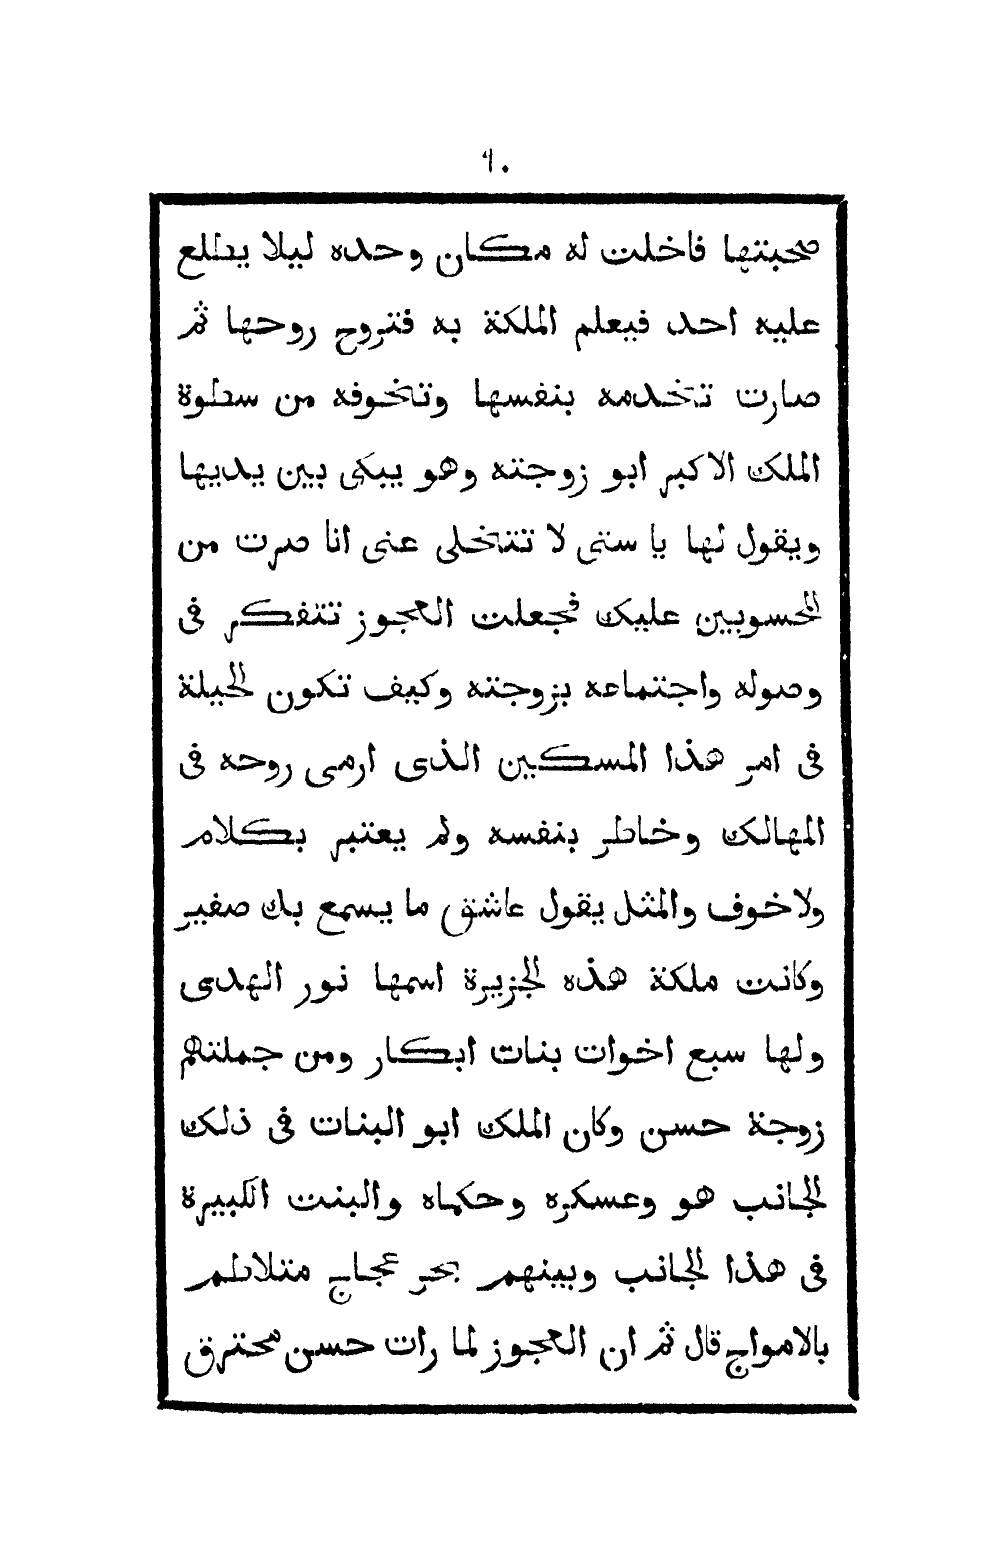 ٩٠
صحبتها فاخلت له مكان وحده ليلا يطلع
عليه احد فيعلم الملكة به فتروح روحها ثم
صارت تتخدمه بنفسها وتخوفه من سطوة
الملك الاكبر ابو زوجته وهو يبكى بين يديها
ويقول لها يا ستى لا تتخلى عنى انا صرت من
المحسوبين عليك فجعلت العجوز تتفكر فى
وصوله واجتماعه بزوجته وكيف تكون الحيلة
فى امر هذا المسكين الذى ارمى روحه فى
المهالك وخاطر بنفسه ولم يعتبر بكلام
ولاخوف والمثل يقول عاشق ما يسمع بك صفير
وكانت ملكة هذه الجزيرة اسمها نور الهدى
ولها سبع اخوات بنات ابكار ومن جملتهم
زوجة حسن وكان الملك ابو البنات فى ذلك
الجانب هو وعسكره وحكماه والبنت الكبيرة
فى هذا الجانب وبينهم بحر عجاج متلاطم
بالامواج قال ثم ان العجوز لما رات حسن محترق